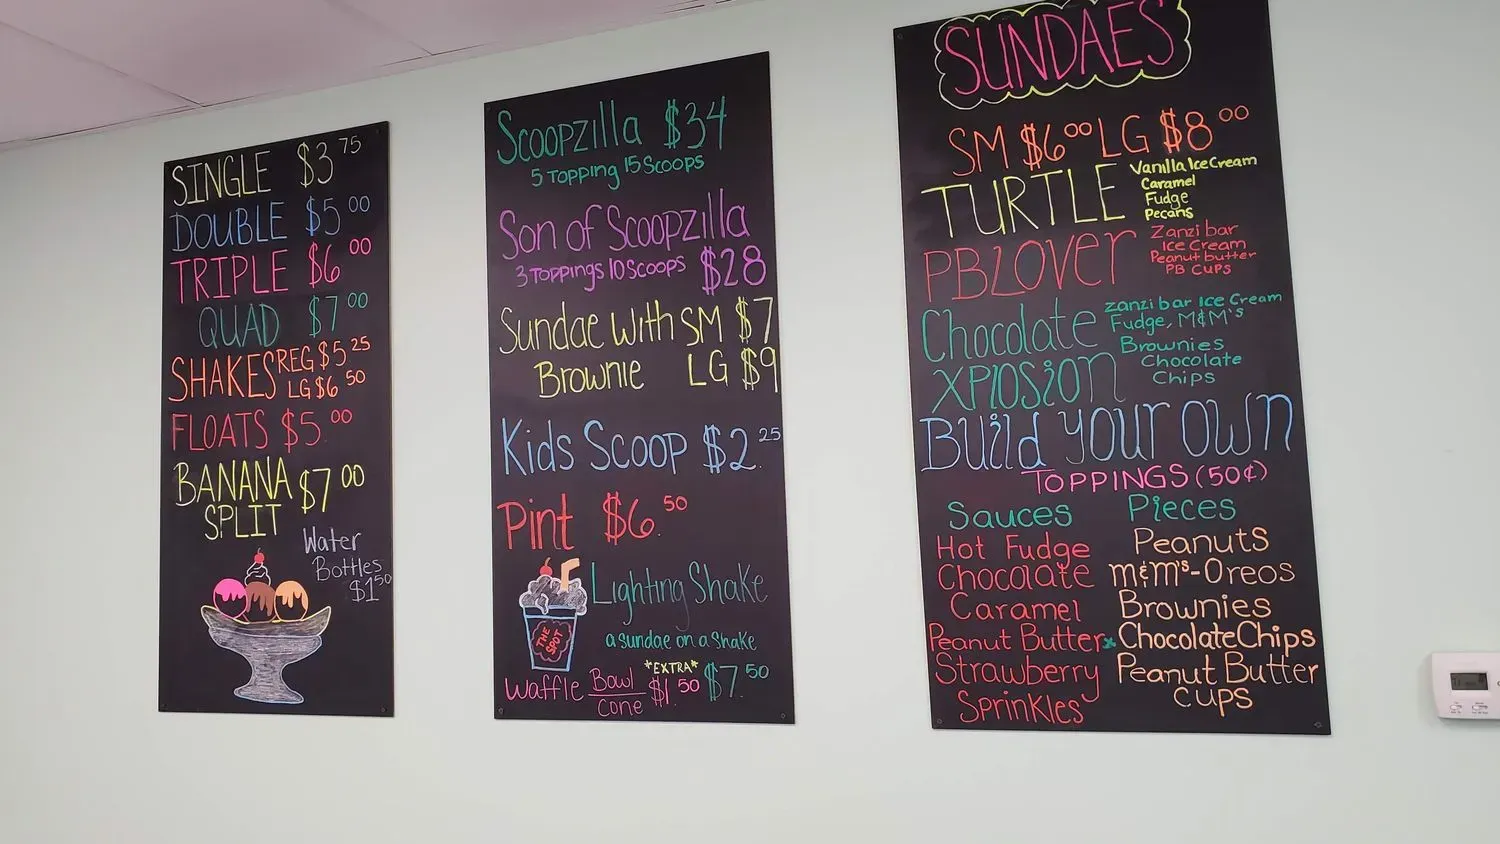 SINGLE $3.75
DOUBLE $5.00
TRIPLE $6.00
QUAD $7.00
SHAKES REG $5.25
LG $6.50
FLOATS $5.00
BANANA SPLIT $7.00
Water
Bottles
$1.50
Scoopzilla $34
5 Topping 15 Scoops
Son of Scoopzilla
3 Toppings 10 Scoops $28
Sundae with SM $7
Brownie LG $9
Kids Scoop $2.25
Pint $6.50
Lighting Shake
THE
SPOT
a sundae on a shake
*EXTRA*
Waffle Bowl $1.50 $7.50
Cone
SUNDAES
SM $6.00 LG $8.00
TURTLE
Vanilla Ice Cream
Caramel
Fudge
Pecans
PB Lover
Zanzibar
Ice Cream
Peanut butter
PB Cups
Chocolate
Xplosion
Zanzibar Ice Cream
Fudge, M&M's
Brownies
Chocolate
Chips
Build your own
TOPPINGS (50¢)
Sauces
Hot Fudge
Chocolate
Caramel
Peanut Butter
Strawberry
Sprinkles
Pieces
Peanuts
M&M's - Oreos
Brownies
Chocolate Chips
Peanut Butter
Cups